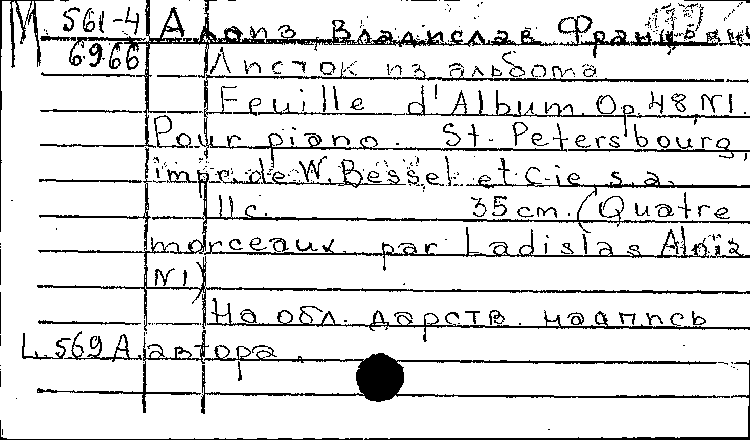 М 561-4 Алоиз, Владислав Францеви
6966 Листок из альбома
Feuille d'Album. Op. 48, N1.
Pour piano. St.-Petersbourg,
impr. de W. Bessel et Cie, s.a.
11c. 35cm. (Quatre
morceaux par Ladislas Aloïz
N1)
На обл. дарств. надпись
L. 569 А. автора.